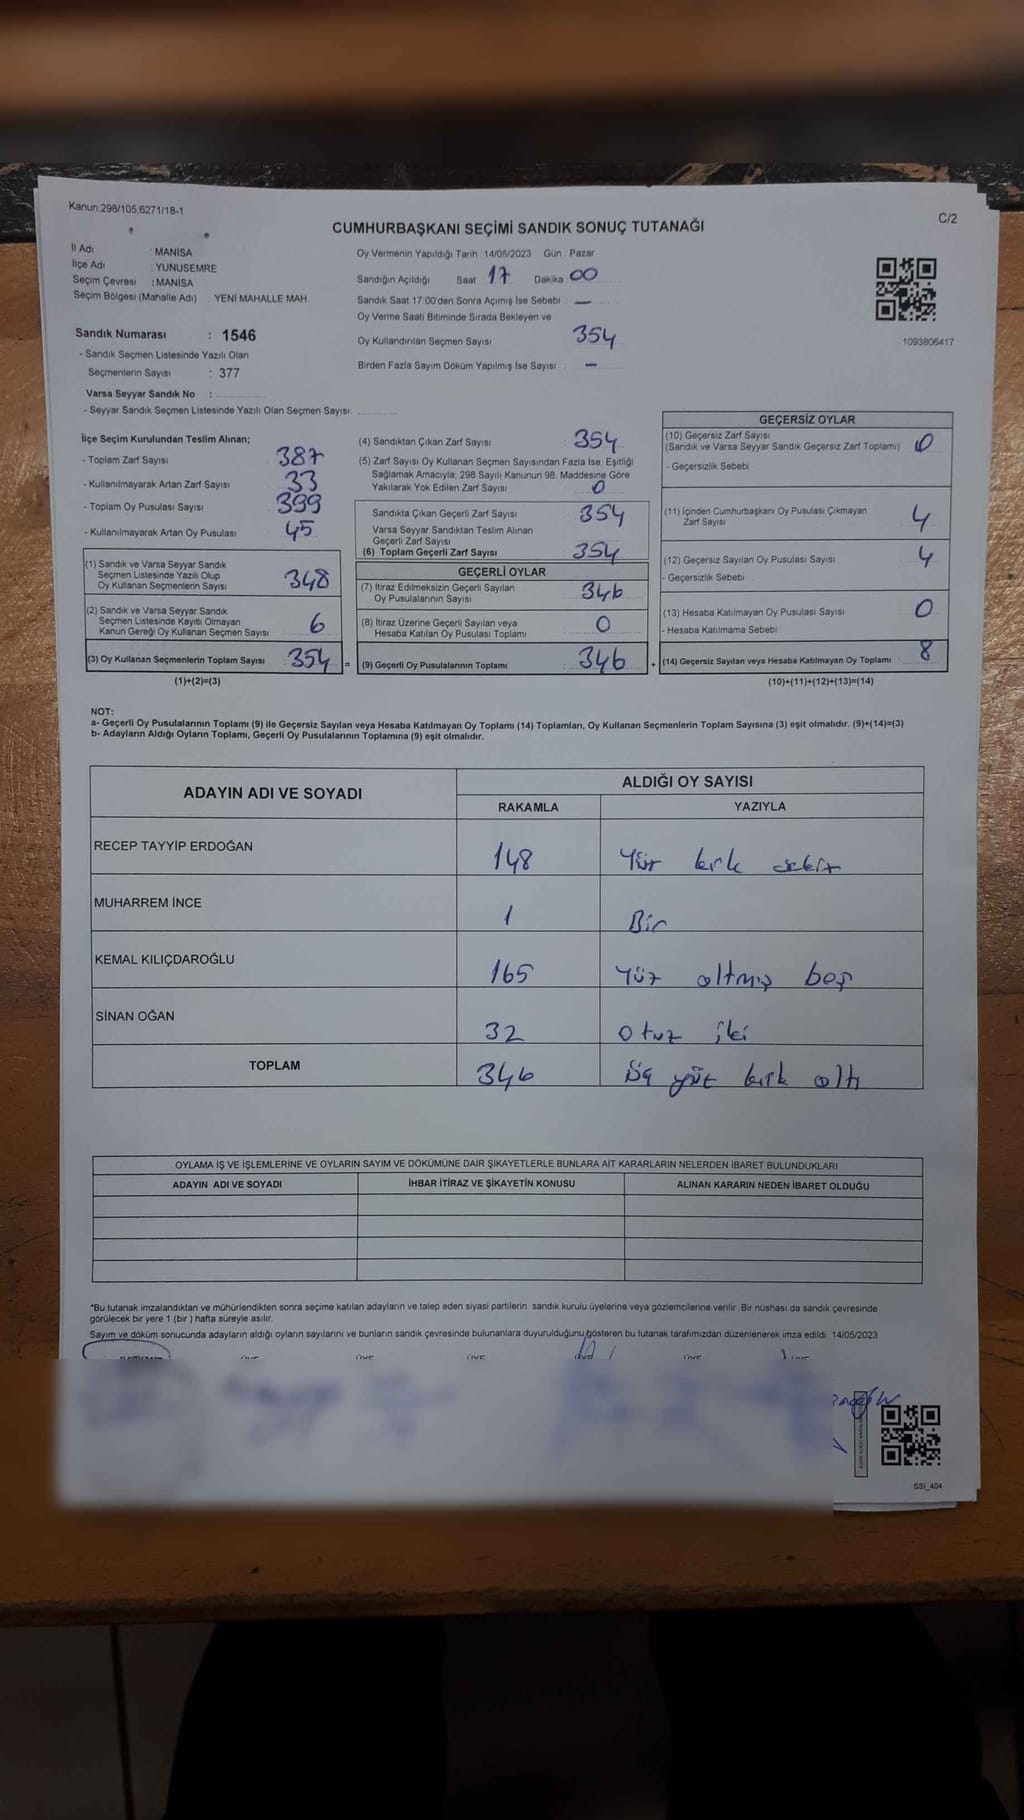 Kanun:298/105,6271/18-1
C/2
CUMHURBAŞKANI SEÇİMİ SANDIK SONUÇ TUTANAĞI
İl Adı : MANİSA
İlçe Adı : YUNUSEMRE
Seçim Çevresi : MANİSA
Seçim Bölgesi (Mahalle Adı) : YENİ MAHALLE MAH.
Sandık Numarası : 1546
- Sandık Seçmen Listesinde Yazılı Olan
Seçmenlerin Sayısı : 377
Varsa Seyyar Sandık No :
- Seyyar Sandık Seçmen Listesinde Yazılı Olan Seçmen Sayısı:
Oy Vermenin Yapıldığı Tarih :14/05/2023 Gün : Pazar
Sandığın Açıldığı Saat 17 Dakika 00
Sandık Saat 17.00'den Sonra Açımış İse Sebebi : —
Oy Verme Saati Bitiminde Sırada Bekleyen ve
Oy Kullandırılan Seçmen Sayısı 354
Birden Fazla Sayım Döküm Yapılmış İse Sayısı : —
1093806417
İlçe Seçim Kurulundan Teslim Alınan;
- Toplam Zarf Sayısı 387
- Kullanılmayarak Artan Zarf Sayısı 33
- Toplam Oy Pusulası Sayısı 399
- Kullanılmayarak Artan Oy Pusulası 45
(1) Sandık ve Varsa Seyyar Sandık
Seçmen Listesinde Yazılı Olup
Oy Kullanan Seçmenlerin Sayısı 348
(2) Sandık ve Varsa Seyyar Sandık
Seçmen Listesinde Kayıtlı Olmayan
Kanun Gereği Oy Kullanan Seçmen Sayısı 6
(3) Oy Kullanan Seçmenlerin Toplam Sayısı : 354 =
(1)+(2)=(3)
(4) Sandıktan Çıkan Zarf Sayısı : 354
(5) Zarf Sayısı Oy Kullanan Seçmen Sayısından Fazla İse, Eşitliği
Sağlamak Amacıyla, 298 Sayılı Kanunun 98. Maddesine Göre
Yakılarak Yok Edilen Zarf Sayısı 0
Sandıkta Çıkan Geçerli Zarf Sayısı : 354
Varsa Seyyar Sandıktan Teslim Alınan
Geçerli Zarf Sayısı
(6) Toplam Geçerli Zarf Sayısı 354
GEÇERLİ OYLAR
(7) İtiraz Edilmeksizin Geçerli Sayılan
Oy Pusulalarının Sayısı : 346
(8) İtiraz Üzerine Geçerli Sayılan veya
Hesaba Katılan Oy Pusulası Toplamı : 0
(9) Geçerli Oy Pusulalarının Toplamı : 346 +
GEÇERSİZ OYLAR
(10) Geçersiz Zarf Sayısı
(Sandık ve Varsa Seyyar Sandık Geçersiz Zarf Toplamı) 0
- Geçersizlik Sebebi
(11) İçinden Cumhurbaşkanı Oy Pusulası Çıkmayan
Zarf Sayısı 4
(12) Geçersiz Sayılan Oy Pusulası Sayısı 4
- Geçersizlik Sebebi :
(13) Hesaba Katılmayan Oy Pusulası Sayısı 0
- Hesaba Katılmama Sebebi :
(14) Geçersiz Sayılan veya Hesaba Katılmayan Oy Toplamı 8
(10)+(11)+(12)+(13)=(14)
NOT:
a- Geçerli Oy Pusulalarının Toplamı (9) ile Geçersiz Sayılan veya Hesaba Katılmayan Oy Toplamı (14) Toplamları, Oy Kullanan Seçmenlerin Toplam Sayısına (3) eşit olmalıdır. (9)+(14)=(3)
b- Adayların Aldığı Oyların Toplamı, Geçerli Oy Pusulalarının Toplamına (9) eşit olmalıdır.
ADAYIN ADI VE SOYADI
ALDIĞI OY SAYISI
RAKAMLA YAZIYLA
RECEP TAYYİP ERDOĞAN 148 Yüz kırk sekiz
MUHARREM İNCE 1 Bir
KEMAL KILIÇDAROĞLU 165 Yüz altmış beş
SİNAN OĞAN 32 Otuz iki
TOPLAM 346 Üç yüz kırk altı
OYLAMA İŞ VE İŞLEMLERİNE VE OYLARIN SAYIM VE DÖKÜMÜNE DAİR ŞİKAYETLERLE BUNLARA AİT KARARLARIN NELERDEN İBARET BULUNDUKLARI
ADAYIN ADI VE SOYADI İHBAR İTİRAZ VE ŞİKAYETİN KONUSU ALINAN KARARIN NEDEN İBARET OLDUĞU
*Bu tutanak imzalandıktan ve mühürlendikten sonra seçime katılan adayların ve talep eden siyasi partilerin sandık kurulu üyelerine veya gözlemcilerine verilir. Bir nüshası da sandık çevresinde
görülecek bir yere 1 (bir ) hafta süreyle asılır.
Sayım ve döküm sonucunda adayların aldığı oyların sayılarını ve bunların sandık çevresinde bulunanlara duyurulduğunu gösteren bu tutanak tarafımızdan düzenlenerek imza edildi. 14/05/2023
ÜYE ÜYE ÜYE ÜYE
SSI_404